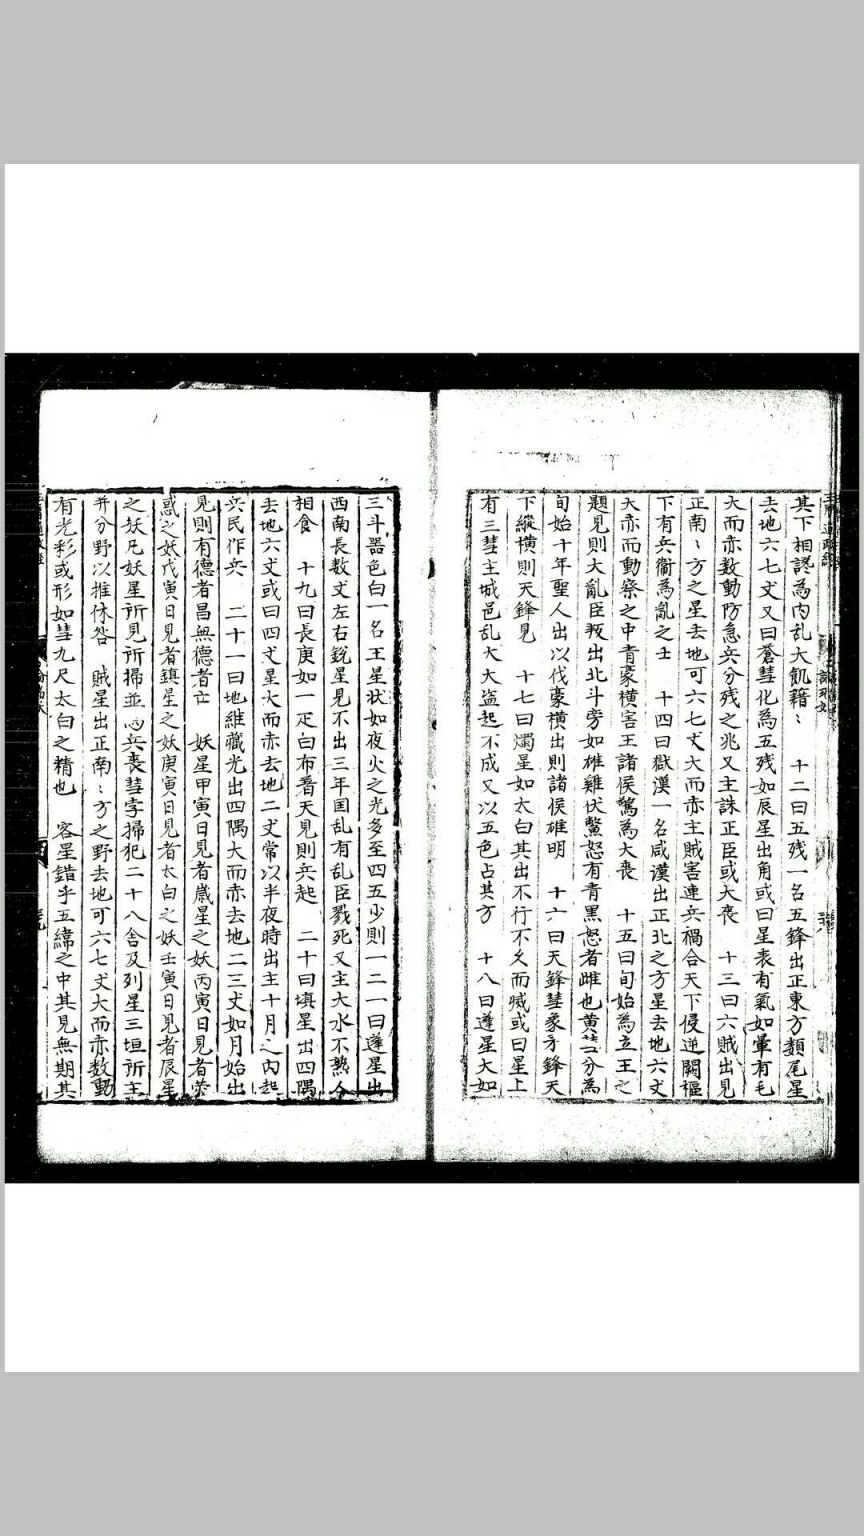 其下相諁為内乱大飢籍〻　十二曰五残一名五鋒出正東方類尾星
去地六七丈又曰蒼彗化為五残如辰星出角或曰星表有氣如暈有毛
大而赤数動防急兵分残之兆又主誅正臣或大丧　十三曰六賊出見
正南〻方之星去地可六七丈大而赤主賊害連兵禍合天下侵逆闕樞
下有兵衝為亂之士　十四曰獄漢一名咸漢出正北之方星去地六丈
大赤而動察之中青豪横害王諸侯驚為大喪　十五曰旬始為立王之
題見則大亂臣叛出北斗旁如雄雞伏鱉怒有青黑怒者雌也黄芒分為
旬始十年聖人出以伐豪横出則諸侯雄明　十六曰天鋒彗象矛鋒天
下縱横則天鋒見　十七曰燭星如太白其出不行不久而㓕或曰星上
有三彗主城邑乱大大盜起不成又以五色占其方　十八曰蓬星大如
三斗器色白一名王星状如夜火之光多至四五少則一二一曰蓬星出
西南長数丈左右銳星見不出三年国乱有乱臣戮死又主大水不熟人
相食　十九曰長庚如一疋白布着天見則兵起　二十曰填星出四隅
去地六丈或曰四丈星大而赤去地二丈常以半夜時出主十月之内起
兵民作兵　二十一曰地維藏光出四隅大而赤去地二三丈如月始出
見則有德者昌無德者亡　妖星甲寅日見者歲星之妖丙寅日見者熒
惑之妖戊寅日見者鎮星之妖庚寅日見者太白之妖壬寅日見者辰星
之妖凡妖星所見所掃並為兵丧彗孛掃犯二十八舎及列星三垣所主
并分野以推休咎　賊星出正南〻方之野去地可六七丈大而赤数動
有光彩或形如彗九尺太白之精也　客星錯乎五緯之中其見無期其